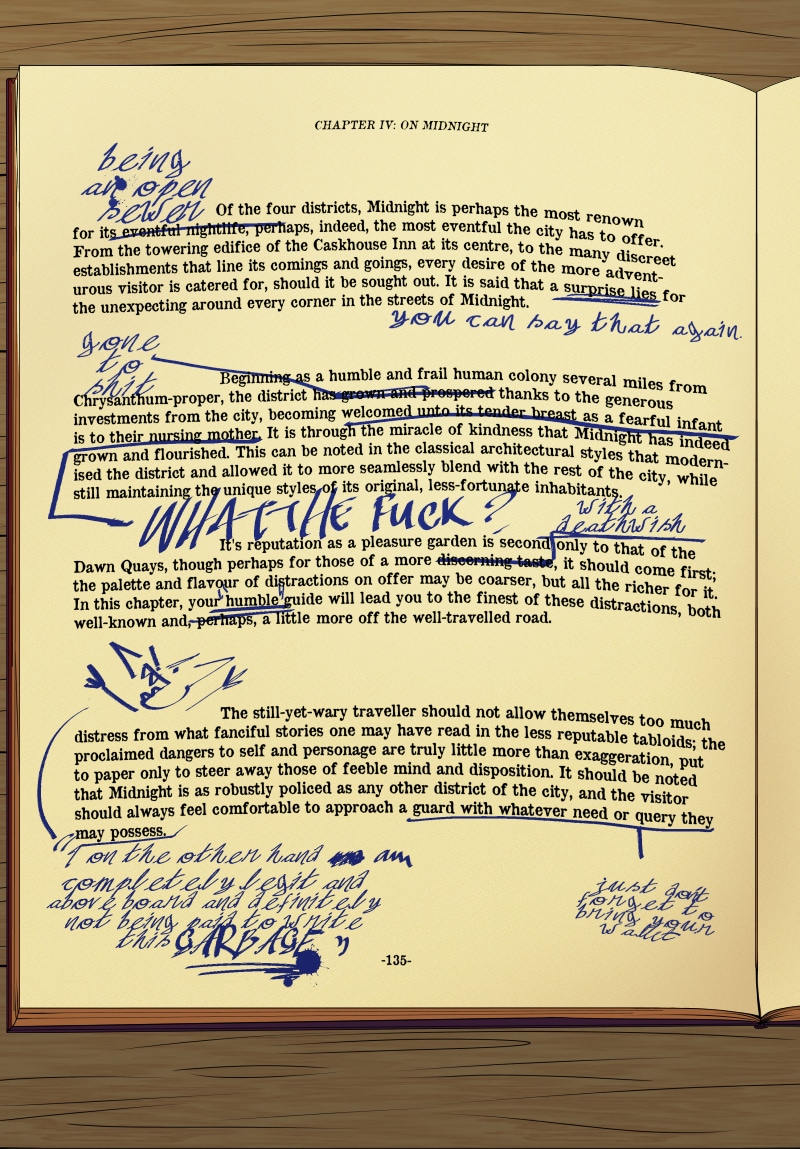 CHAPTER IV: ON MIDNIGHT
being
an open
sewer
Of the four districts, Midnight is perhaps the most renown
for its eventful nightlife, perhaps, indeed, the most eventful the city has to offer.
From the towering edifice of the Caskhouse Inn at its centre, to the many discreet
establishments that line its comings and goings, every desire of the more advent-
urous visitor is catered for, should it be sought out. It is said that a surprise lies for
the unexpecting around every corner in the streets of Midnight.
you can say that again.
gone
to
shit
Beginning as a humble and frail human colony several miles from
Chrysanthum-proper, the district has grown and prospered thanks to the generous
investments from the city, becoming welcomed unto its tender breast as a fearful infant
is to their nursing mother. It is through the miracle of kindness that Midnight has indeed
grown and flourished. This can be noted in the classical architectural styles that modern-
ised the district and allowed it to more seamlessly blend with the rest of the city, while
still maintaining the unique styles of its original, less-fortunate inhabitants.
WHAT THE FUCK?
with a
deathwish
It's reputation as a pleasure garden is second only to that of the
Dawn Quays, though perhaps for those of a more discerning taste, it should come first;
the palette and flavour of distractions on offer may be coarser, but all the richer for it.
In this chapter, your "humble" guide will lead you to the finest of these distractions, both
well-known and, perhaps, a little more off the well-travelled road.
The still-yet-wary traveller should not allow themselves too much
distress from what fanciful stories one may have read in the less reputable tabloids; the
proclaimed dangers to self and personage are truly little more than exaggeration, put
to paper only to steer away those of feeble mind and disposition. It should be noted
that Midnight is as robustly policed as any other district of the city, and the visitor
should always feel comfortable to approach a guard with whatever need or query they
may possess.
"I on the other hand am
completely legit and
above board and definitely
not being paid to write
this GARBAGE"
just dont
forget to
bring your
wallet
-135-